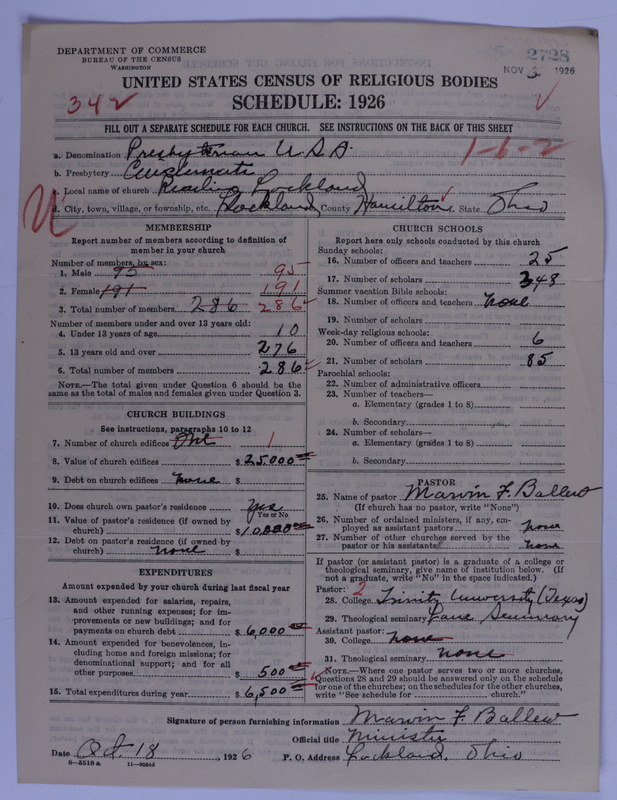 DEPARTMENT OF COMMERCE
BUREAU OF THE CENSUS
WASHINGTON
2728
NOV 3, 1926
UNITED STATES CENSUS OF RELIGIOUS BODIES
342
SCHEDULE: 1926
FILL OUT A SEPARATE SCHEDULE FOR EACH CHURCH. SEE INSTRUCTIONS ON THE BACK OF THIS SHEET
a. Denomination Presbyterian U.S.A. 1-6-2
b. Presbytery Cincinnati
c. Local name of church Reading Lockland
d. City, town, village, or township, etc. Lockland County Hamilton State Ohio
MEMBERSHIP
Report number of members according to definition of
member in your church
Number of members, by sex:
1. Male 95 95
2. Female 191 191
3. Total number of members 286 286
Number of members under and over 13 years old:
4. Under 13 years of age 10
5. 13 years old and over 276
6. Total number of members 286
NOTE.—The total given under Question 6 should be the
same as the total of males and females given under Question 3.
CHURCH BUILDINGS
See instructions, paragraphs 10 to 12
7. Number of church edifices One 1
8. Value of church edifices $ 25,000
9. Debt on church edifices none $
10. Does church own pastor's residence Yes
Yes or No
11. Value of pastor's residence (if owned by
church) $ 10,000
12. Debt on pastor's residence (if owned by
church) none $
EXPENDITURES
Amount expended by your church during last fiscal year
13. Amount expended for salaries, repairs,
and other running expenses; for im-
provements or new buildings; and for
payments on church debt $ 6,000
14. Amount expended for benevolences, in-
cluding home and foreign missions; for
denominational support; and for all
other purposes 500
15. Total expenditures during year $ 6,500
CHURCH SCHOOLS
Report here only schools conducted by this church
Sunday schools:
16. Number of officers and teachers 25
17. Number of scholars 348
Summer vacation Bible schools:
18. Number of officers and teachers none
19. Number of scholars
Week-day religious schools:
20. Number of officers and teachers 6
21. Number of scholars 85
Parochial schools:
22. Number of administrative officers
23. Number of teachers—
a. Elementary (grades 1 to 8)
b. Secondary
24. Number of scholars—
a. Elementary (grades 1 to 8)
b. Secondary
PASTOR
25. Name of pastor Marvin F. Ballew
(If church has no pastor, write "None")
26. Number of ordained ministers, if any, em-
ployed as assistant pastors none
27. Number of other churches served by the
pastor or his assistants none
If pastor (or assistant pastor) is a graduate of a college or
theological seminary, give name of institution below. (If
not a graduate, write "No" in the space indicated.)
Pastor: 2
28. College Trinity University (Texas)
29. Theological seminary Lane Seminary
Assistant pastor:
30. College none
31. Theological seminary none
NOTE.—Where one pastor serves two or more churches,
Questions 28 and 29 should be answered only on the schedule
for one of the churches; on the schedules for the other churches,
write "See schedule for church."
Signature of person furnishing information Marvin F. Ballew
Official title Minister
Date Oct. 18, 1926 P. O. Address Lockland, Ohio
8-5518a